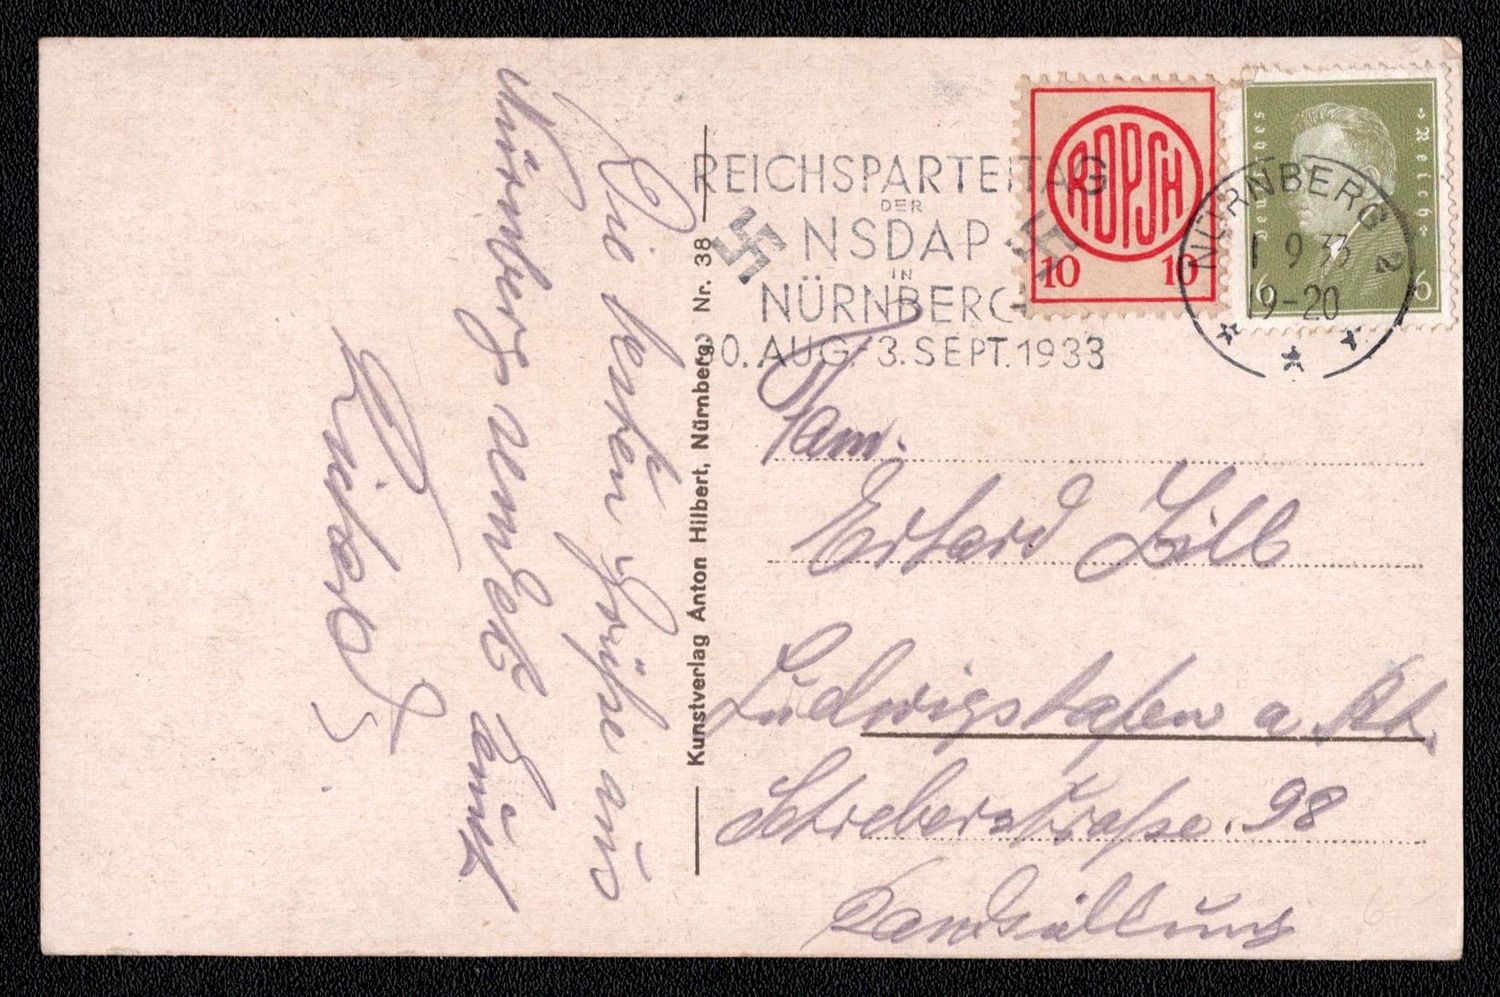 Die besten Grüße aus
Nürnberg sendet
Kunstverlag Anton Hilbert, Nürnberg. Nr. 38
REICHSPARTEITAG
DER
NSDAP
IN
NÜRNBERG
30. AUG.-3. SEPT. 1933
RDPSCH
10 10
NÜRNBERG 2
1 9 33
19-20
Deutsches Reich
6 6
Fam.
Erhard Zill
Ludwigshafen a Rh.
Schreberstraße. 98